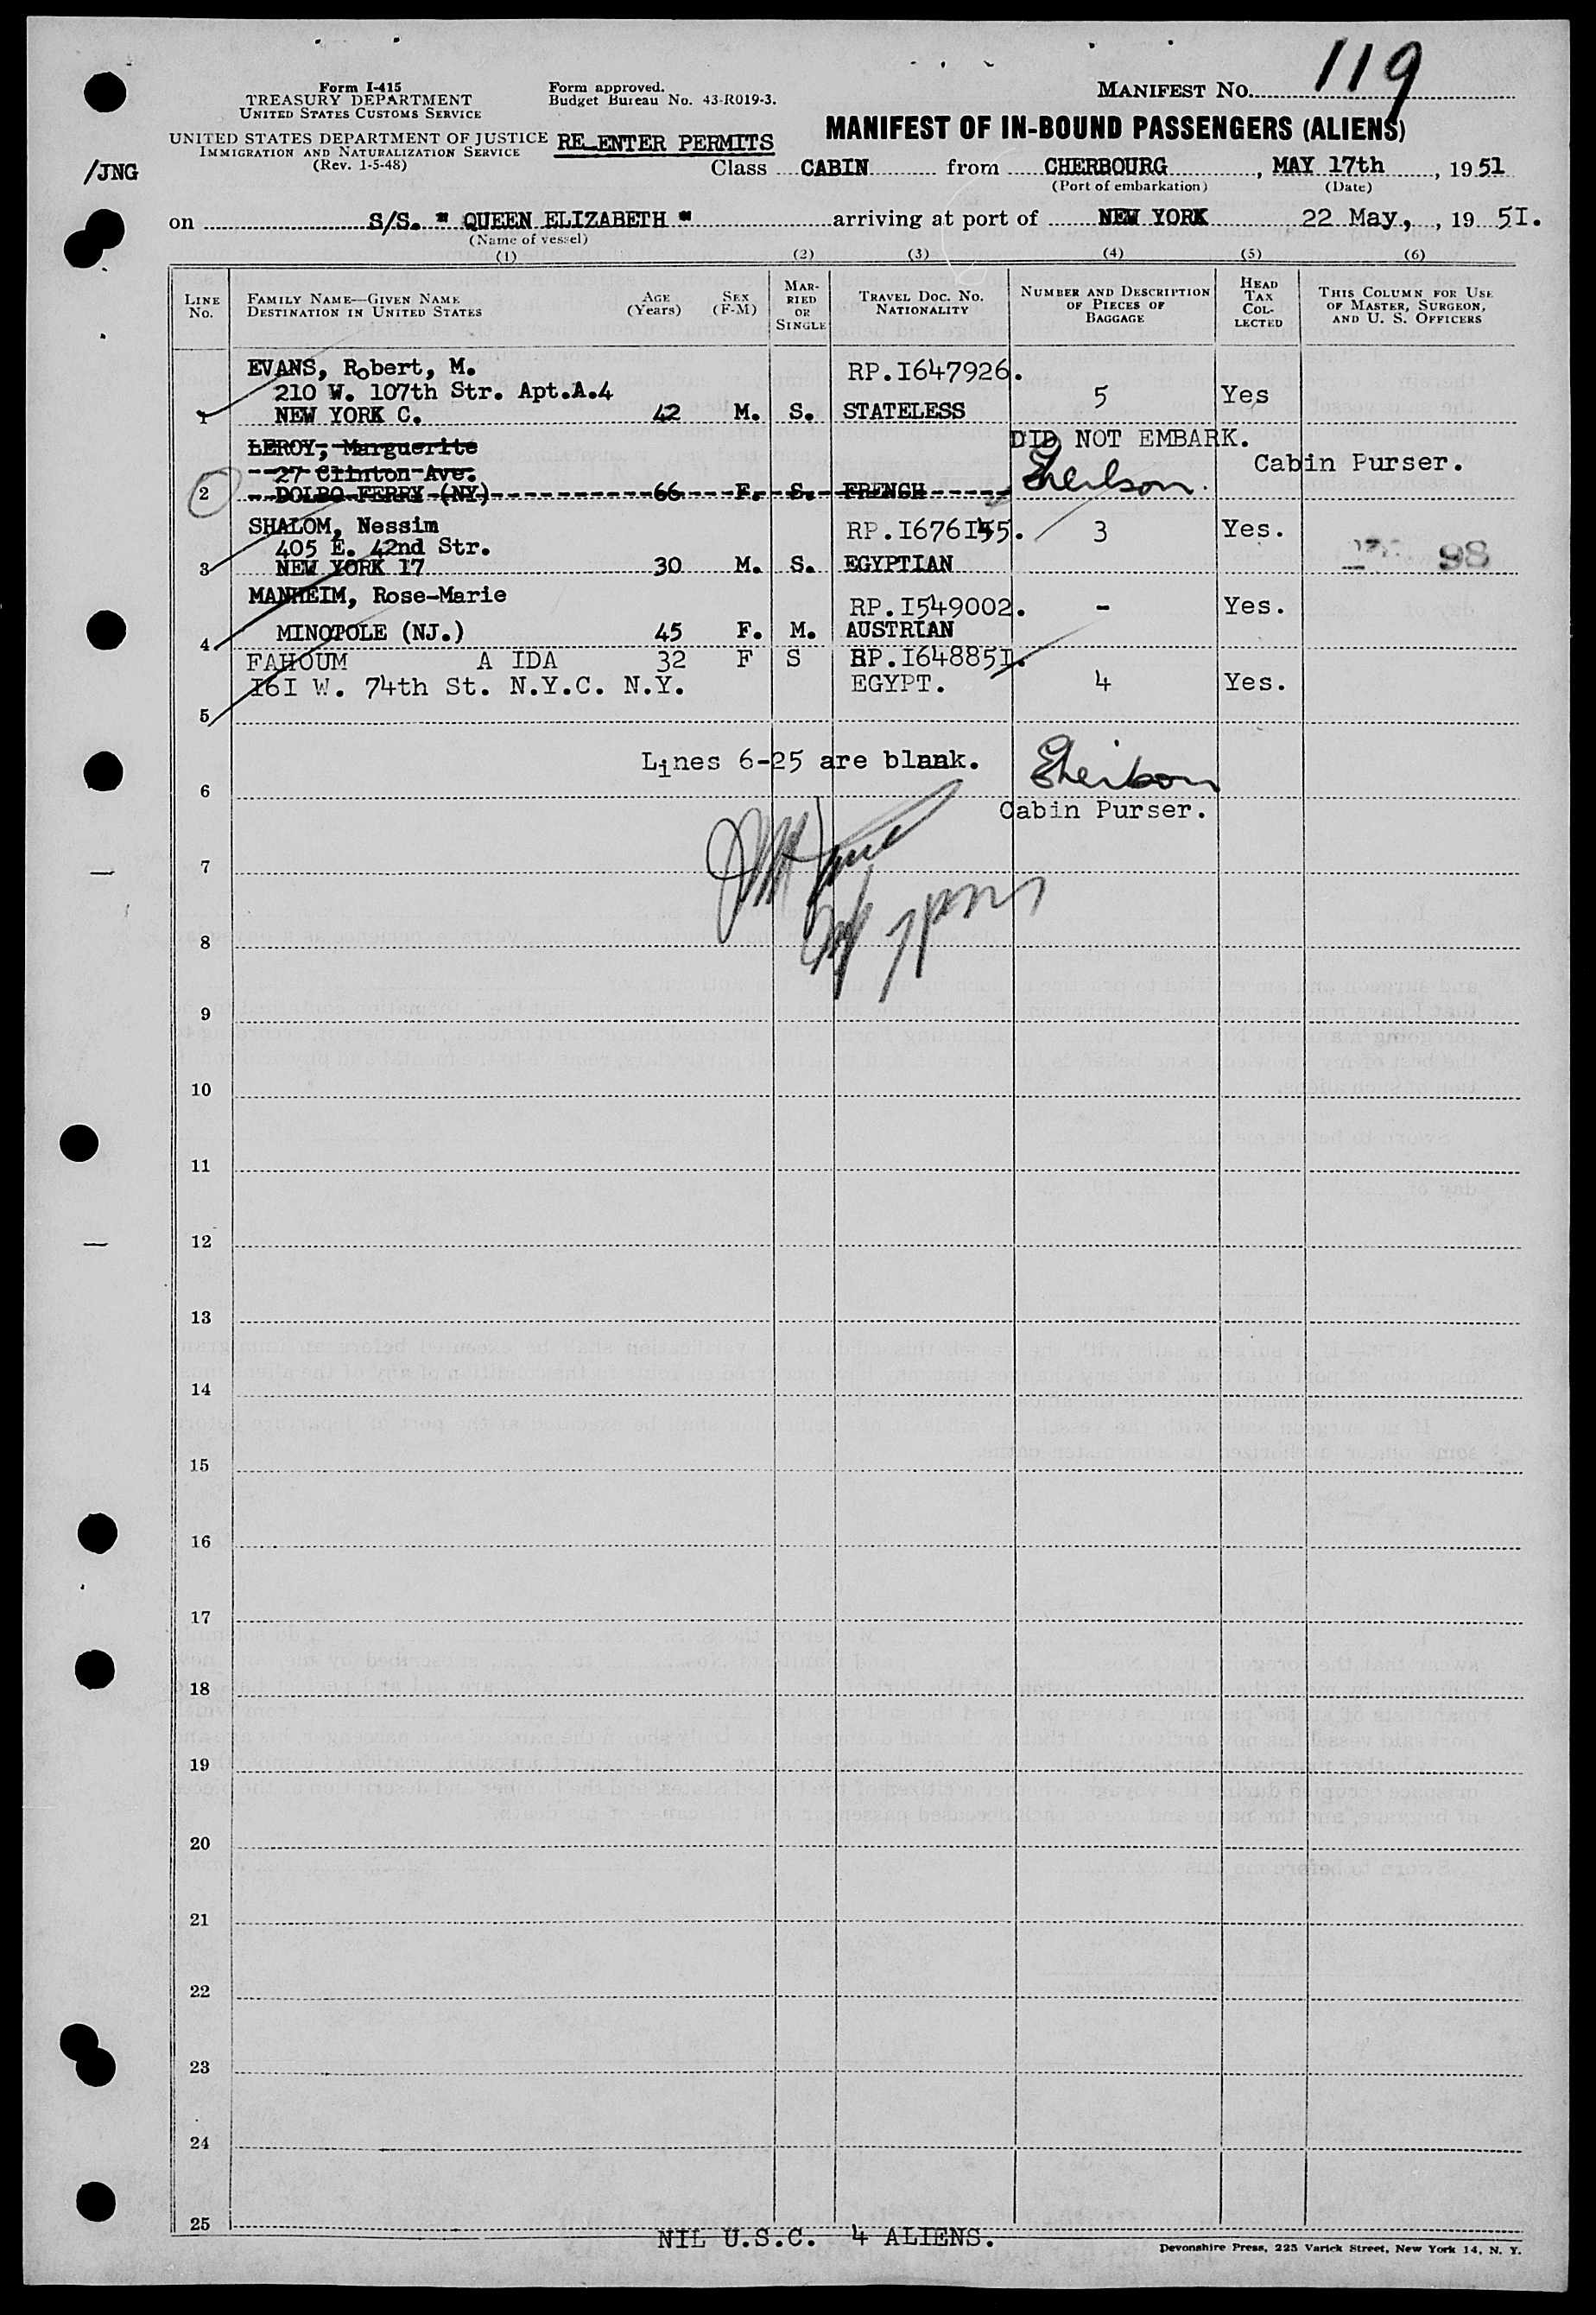 119
Form I-415
TREASURY DEPARTMENT
UNITED STATES CUSTOMS SERVICE
Form approved.
Budget Bureau No. 43-R019-3.
MANIFEST NO.
UNITED STATES DEPARTMENT OF JUSTICE
IMMIGRATION AND NATURALIZATION SERVICE
(Rev. 1-5-48)
RE_ENTER PERMITS
MANIFEST OF IN-BOUND PASSENGERS (ALIENS)
/JNG
Class CABIN from CHERBOURG, MAY 17th, 1951
(Port of embarkation) (Date)
on S/S. " QUEEN ELIZABETH " arriving at port of NEW YORK 22 May,, 195I.
(Name of vessel)
(1) (2) (3) (4) (5) (6)
LINE No.
FAMILY NAME—GIVEN NAME
DESTINATION IN UNITED STATES
AGE (Years)
SEX (F-M)
MARRIED OR SINGLE
TRAVEL DOC. NO.
NATIONALITY
NUMBER AND DESCRIPTION OF PIECES OF BAGGAGE
HEAD TAX COLLECTED
THIS COLUMN FOR USE OF MASTER, SURGEON, AND U. S. OFFICERS
EVANS, Robert, M. RP.I647926.
210 W. 107th Str. Apt.A.4 5 Yes
1 NEW YORK C. 42 M. S. STATELESS
LEROY, Marguerite DID NOT EMBARK.
27 Clinton Ave. Cabin Purser.
2 DOLBO FERRY (NY) 66 F. S. FRENCH
SHALOM, Nessim RP.I676I55. 3 Yes.
405 E. 42nd Str.
3 NEW YORK 17 30 M. S. EGYPTIAN 98
MANHEIM, Rose-Marie RP.I549002. - Yes.
4 MINOTOLE (NJ.) 45 F. M. AUSTRIAN
FAHOUM A IDA 32 F S RP.I64885I.
I6I W. 74th St. N.Y.C. N.Y. EGYPT. 4 Yes.
5
Lines 6-25 are blank.
6
Cabin Purser.
7
8
9
10
11
12
13
14
15
16
17
18
19
20
21
22
23
24
25
NIL U.S.C. 4 ALIENS.
Devonshire Press, 225 Varick Street, New York 14, N. Y.